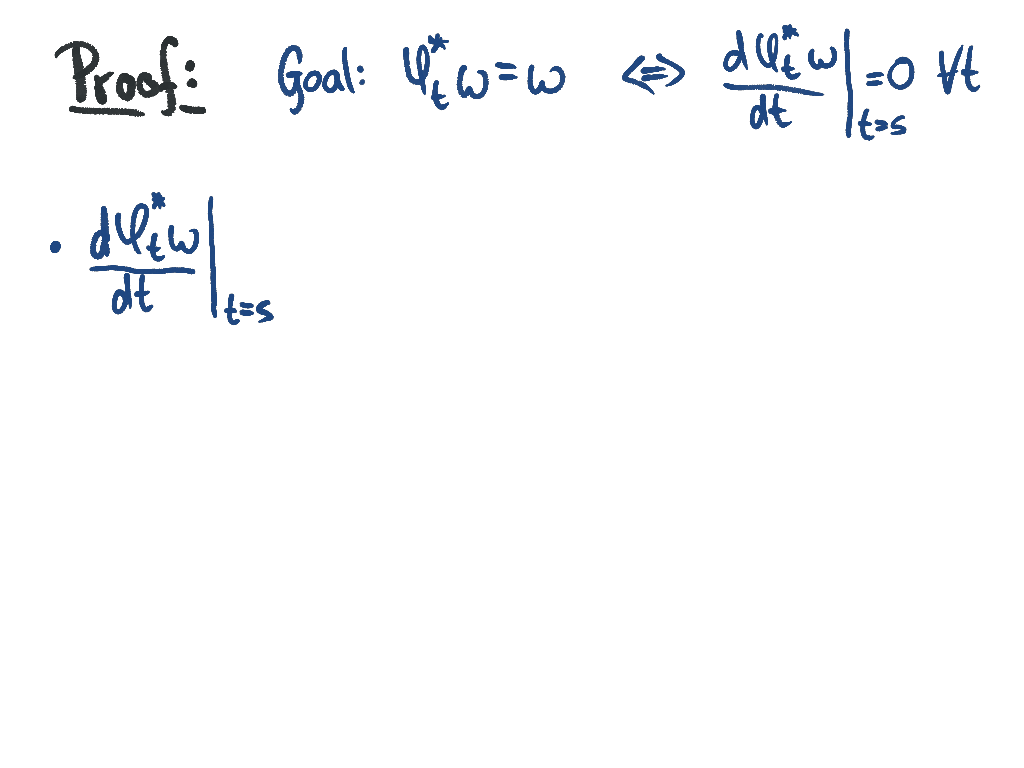 Proof: Goal: φ_t^* ω = ω ⟺ dφ_t^* ω / dt |_{t=s} = 0 ∀t
• dφ_t^* ω / dt |_{t=s}